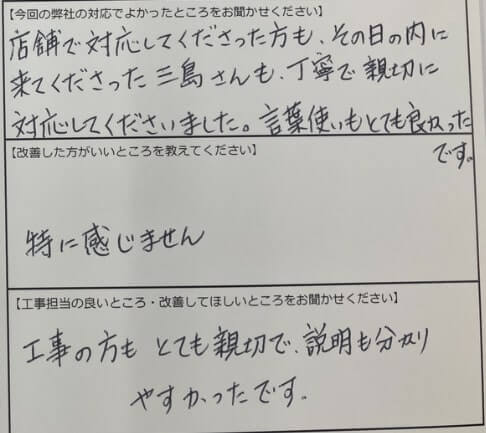 【今回の弊社の対応でよかったところをお聞かせください】
店舗で対応してくださった方も、その日の内に
来てくださった三島さんも、丁寧で親切に
対応してくださいました。言葉使いもとても良かった
です。
【改善した方がいいところを教えてください】
特に感じません
【工事担当の良いところ・改善してほしいところをお聞かせください】
工事の方もとても親切で、説明も分かり
やすかったです。